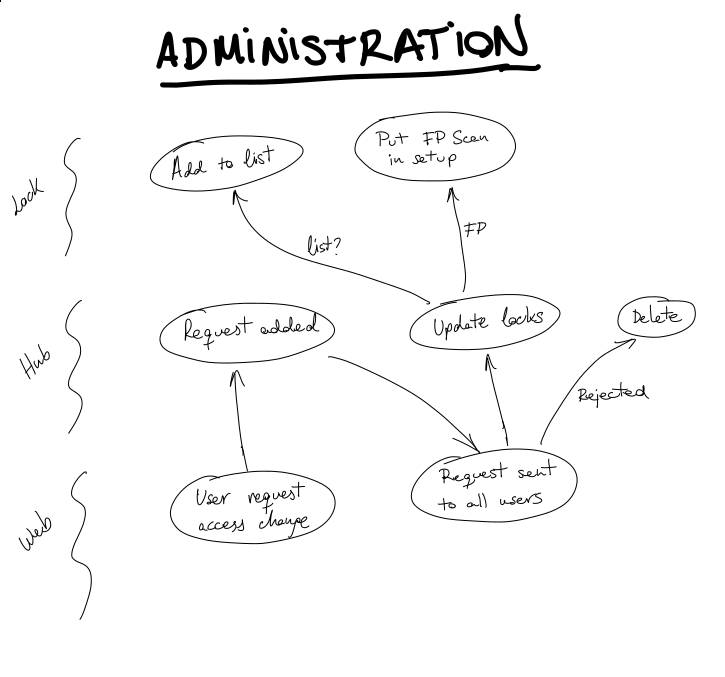 ADMINISTRATION
Lock
Add to list
Put FP Scan
in setup
list?
FP
Hub
Request added
Update locks
Delete
Rejected
Web
User request
access change
Request sent
to all users